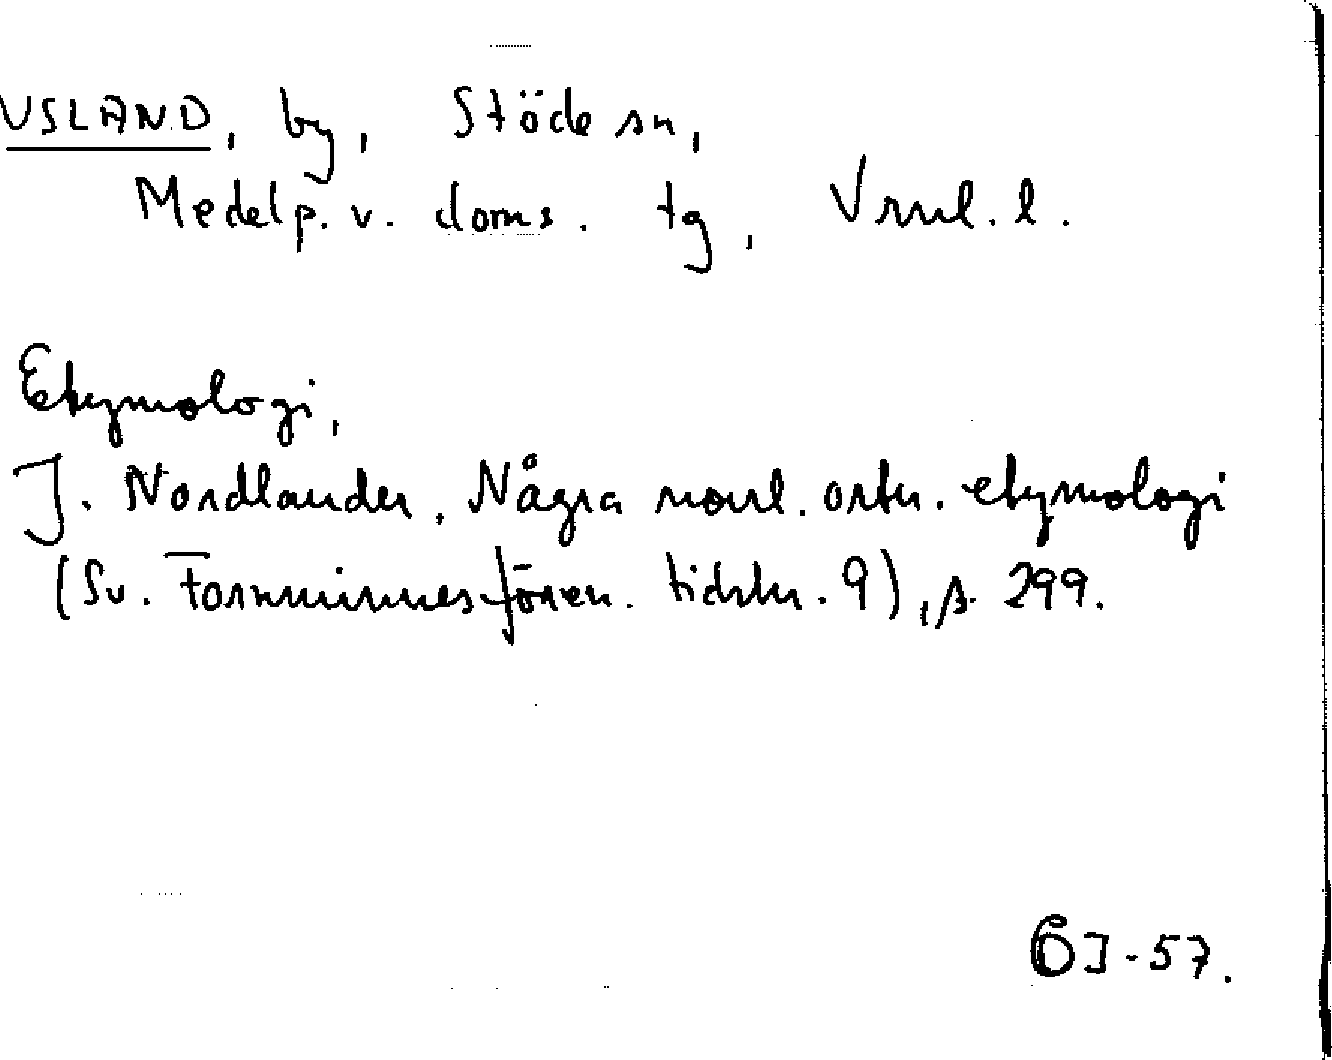 USLAND, by, Stöde sn,
Medelp. v. doms. tg, Vnrl. l.
Etymologi,
J. Nordlander, Några norrl. ortn. etymologi
(Sv. Fornminnesfören. tidskr. 9), s. 299.
GJ-57.